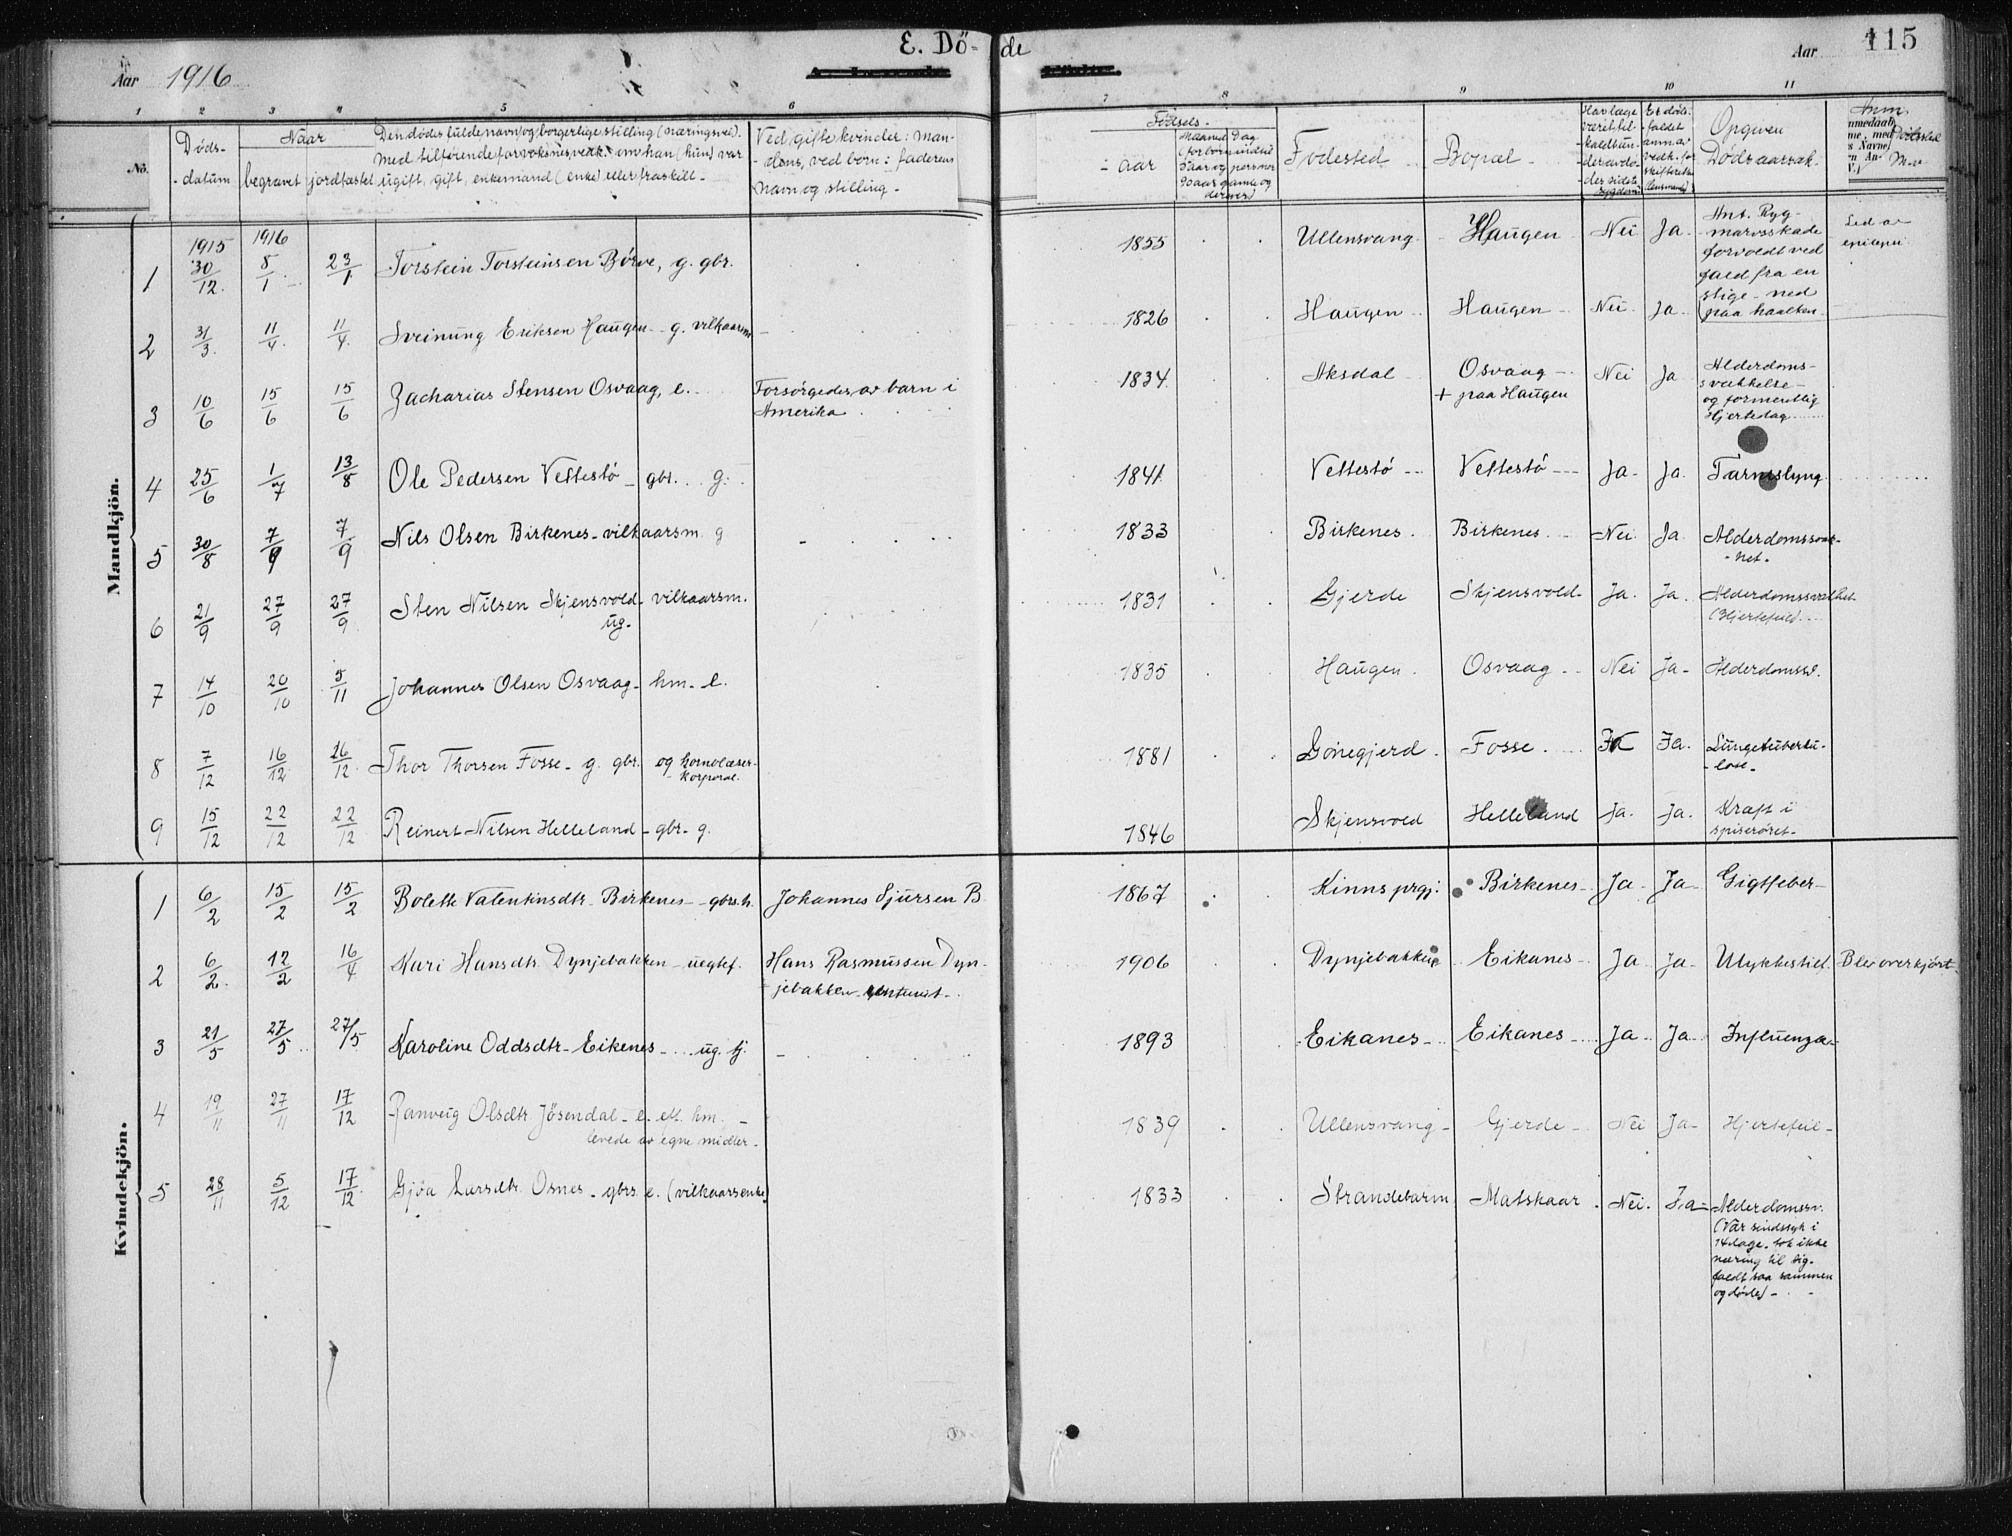 E. Döde
115
Aar 1916
Aar
1 2 3 4 5 6 7 8 9 10 11
No.
Dödsdatum
Naar
begravet
jordfæstet
Den dödes fulde navn og borgerlige stilling (næringsvei).
Med tilföiende for voksnes vedk. om han (hun) var
ugift, gift, enkemand (enke) eller fraskilt -
Ved gifte kvinder: man-
dens, ved born: faderens
navn og stilling -
Födsels-
- aar
Maaned Dag
Födested
Bopæl -
Opgiven
Dödsaarsak -
Anm.
Mandkjön.
1 1915 30/12 1916 8/1 23/1 Torstein Torsteinsen Börve, g. gbr. 1855 Ullensvang Haugen Nei Ja Ant. Ryg-
marvsskade
forvoldt ved
fald fra en
stige - ned
paa haalken
Led av
epilepsi
2 31/3 11/4 11/4 Sveinung Eriksen Haugen - g. vilkaarsm 1826 Haugen Haugen Nei Ja
3 10/6 15/6 15/6 Zacharias Stensen Osvaag, e. Forsörgedes av barn i
Amerika
1834 Aksdal Osvaag -
+ paa Haugen
Nei Ja Alderdoms-
svækkelse -
og formentlig
Hjerteslag
4 25/6 1/7 13/8 Ole Pedersen Vettestö - gbr. g. 1841 Vettestö Vettestö Ja Ja Tarmslyng
5 30/8 7/9 7/9 Nils Olsen Birkenes - vilkaarsm. g 1833 Birkenes Birkenes Nei Ja Alderdomssvak-
het.
6 21/9 27/9 27/9 Sten Nilsen Skjensvold - vilkaarsm.
ug.
1831 Gjerde Skjensvold Ja Ja Alderdomssvakhet
(Hjertefeil)
7 14/10 20/10 5/11 Johannes Olsen Osvaag - hm. e. 1835 Haugen Osvaag Nei Ja Alderdomssv.
8 7/12 16/12 26/12 Thor Thorsen Fosse - g. gbr. og hornblæser-
korporal.
1881 Fosse Ja Ja Lungetuberku-
lose -
9 15/12 22/12 22/12 Reinert Nilsen Helleland - gbr - g. 1846 Skjensvold Helleland Ja Ja Kræft i
spiseröret -
Kvindekjön.
1 6/2 15/2 15/2 Bolette Valentinsdtr. Birkenes - gbrs.h. Johannes Sjursen B. 1867 Kinns prgj: Birkenes Ja Ja Gigtfeber -
2 6/2 12/2 16/4 Kari Hansdtr. Dynjebakken - uegtef. Hans Rasmussen Dyn-
jebakken
1906 Dynjebakken Eikanes Ja Ja Ulykkestilf. Blev overkjört
3 21/5 27/5 27/5 Karoline Oddsdtr - Eikenes - ug. tj. 1893 Eikanes Eikanes Ja Ja Influenza -
4 19/11 27/11 17/12 Ranveig Olsdtr. Jösendal - e. eft. hm. -
levede av egne midler -
1839 Ullensvang Gjerde Nei Ja Hjertefeil -
5 28/11 5/12 17/12 Gjöa Larsdtr. Osnes - gbrs. e. (vilkaarsenke) 1833 Strandebarm Matskaar Nei Ja Alderdomssv.
(Var sindssyk i
14 dage. tok ikke
næring til sig.
faldt saa sammen
og döde) -